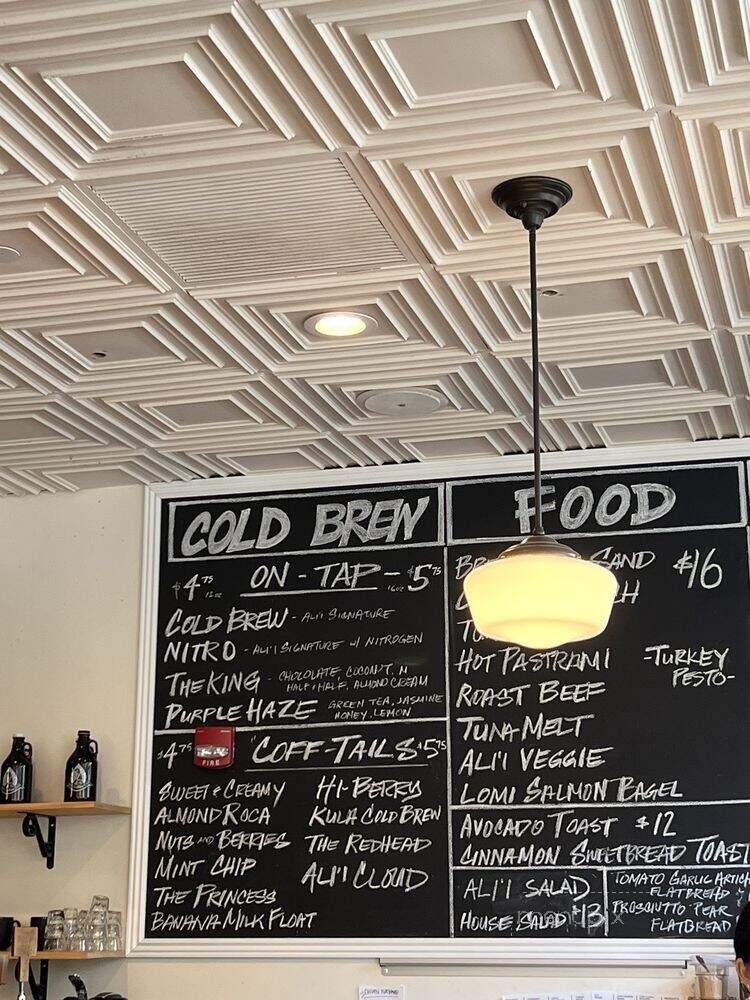 COLD BREW
$4.75 12oz ON-TAP - 16oz $5.75
COLD BREW - ALI'I SIGNATURE
NITRO - ALI'I SIGNATURE W/ NITROGEN
THE KING - CHOCOLATE, COCONUT, M
HALF & HALF, ALMOND CREAM
PURPLE HAZE GREEN TEA, JASMINE
HONEY, LEMON
$4.75 "COFF-TAILS $5.75
FIRE
SWEET & CREAMY
ALMOND ROCA
NUTS AND BERRIES
MINT CHIP
THE PRINCESS
BANANA MILK FLOAT
HI-BERRY
KULA COLD BREW
THE REDHEAD
ALI'I CLOUD
FOOD
SAND $16
HOT PASTRAMI
-TURKEY
PESTO-
ROAST BEEF
TUNA MELT
ALI'I VEGGIE
LOMI SALMON BAGEL
AVOCADO TOAST $12
CINNAMON SWEETBREAD TOAST
ALI'I SALAD
HOUSE SALAD $13
TOMATO GARLIC ARTICH
FLATBREAD
PROSCIUTTO PEAR
FLATBREAD